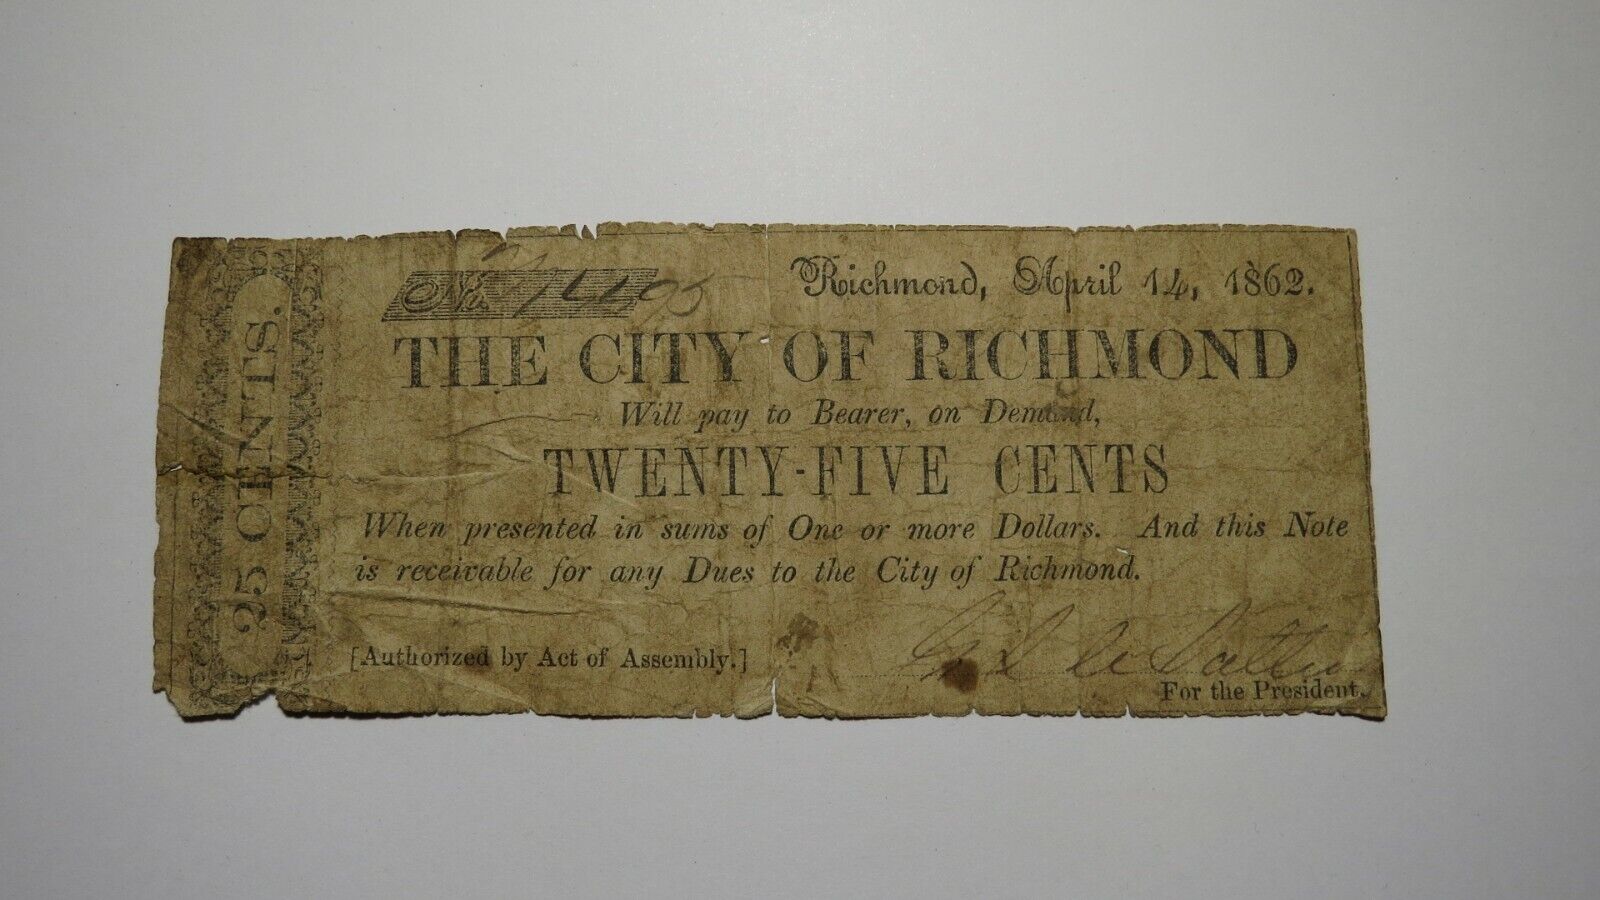 25 CENTS.
No.
Richmond, April 14, 1862.
THE CITY OF RICHMOND
Will pay to Bearer, on Demand,
TWENTY-FIVE CENTS
When presented in sums of One or more Dollars. And this Note
is receivable for any Dues to the City of Richmond.
[Authorized by Act of Assembly.]
For the President.